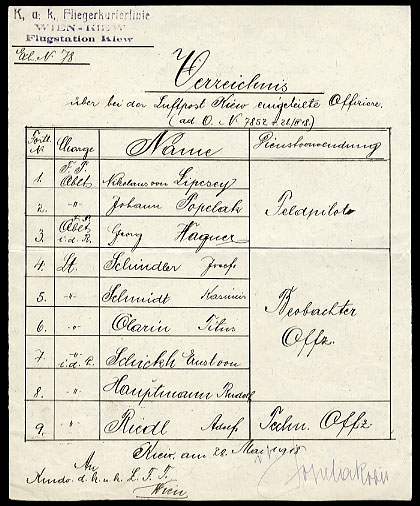 K. u. k. Fliegerkurierlinie
WIEN-KIEW
Flugstation Kiew
Verzeichnis
über bei der Luftpost Kiew eingeteilte Offiziere.
(ad O. N 7852 v.
Fortl. N Charge Name Dienstverwendung
1. F.P. Oblt. Nikolaus von Lipcsey
2. -"- Johann Popelak Feldpilot
3. F.P. Oblt. i.d.R. Georg Wagner
4. Lt. Schindler Josef
5. -"- Schmidt Kasimir
6. -"- Olarin Titus Beobachter
7. -"- i.d.R. Schickh Ernst von Offz.
8. -"- Hauptmann Rudolf
9. -"- Riedl Adolf Techn. Offz
Kiew, am 20. Mai 1918
An
Kmdo. d. k. u. k. L. F. T.
Wien